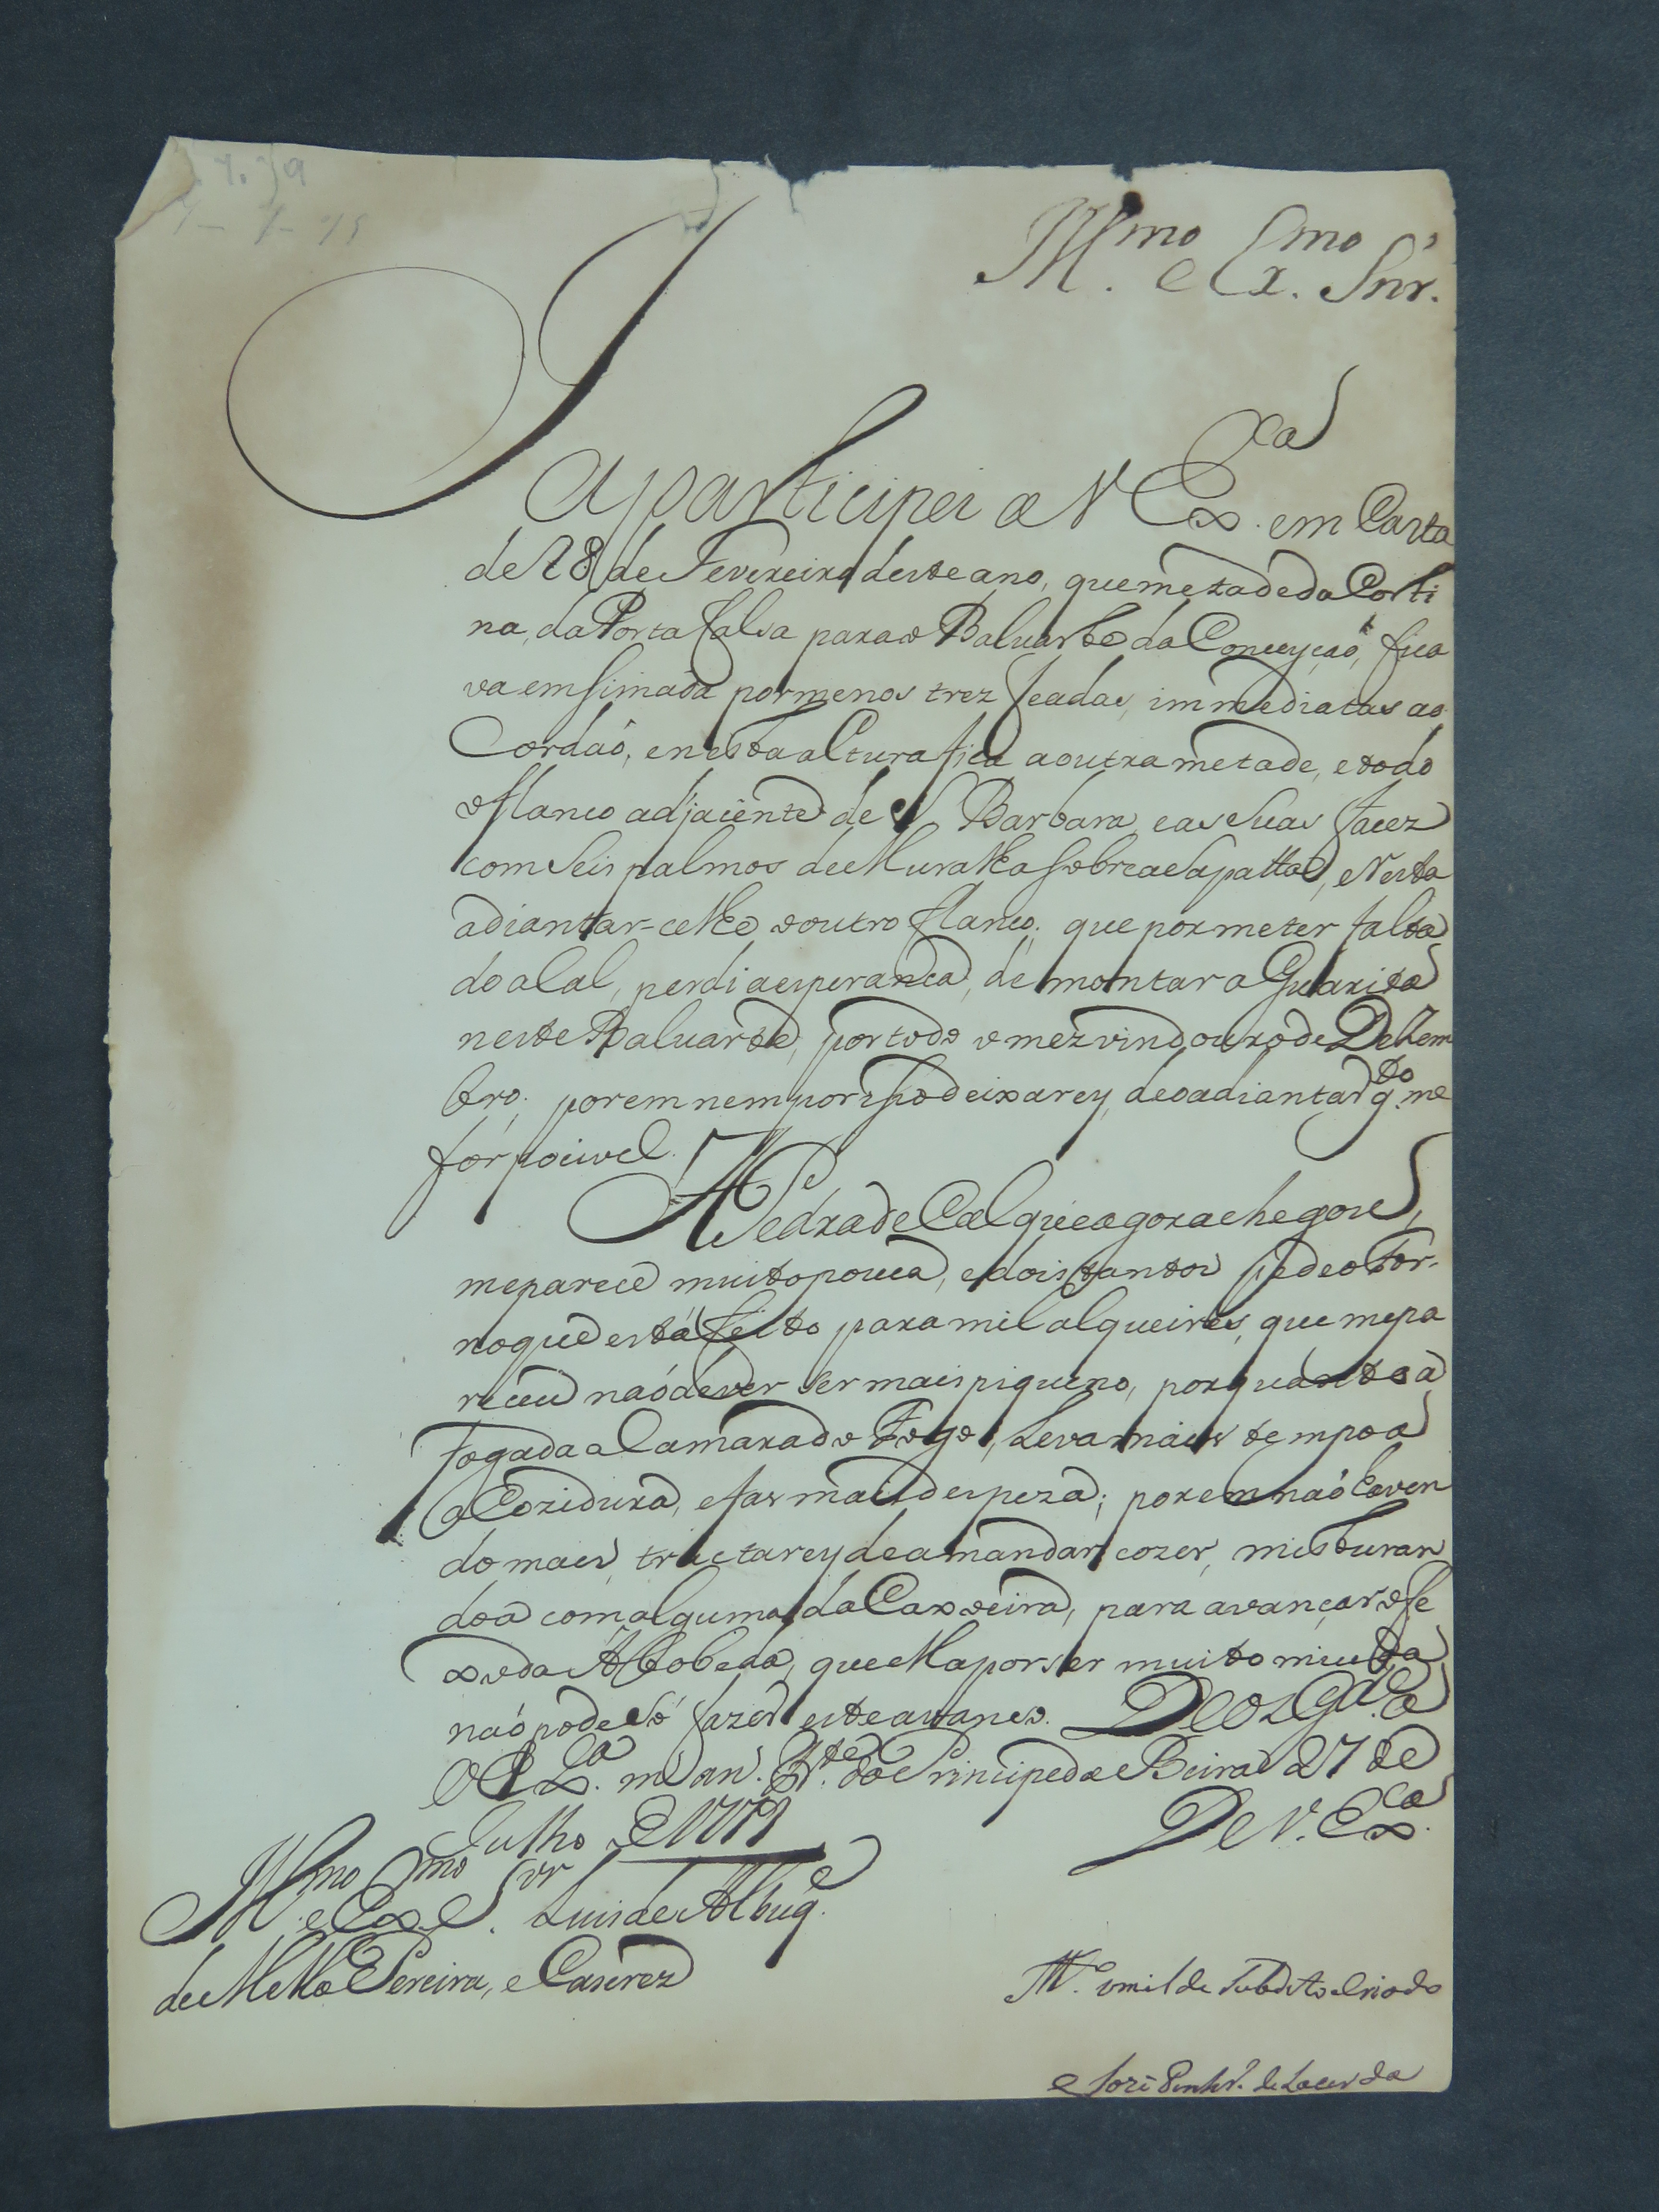 Ill.mo e Ex.mo Snr.
Ja participei a V Ex.ca em Carta
de 28 de Fevereiro deste ano, que metade da Corti
na, da Porta falsa para o Baluarte da Conceyçaõ, fica
va emsimada por menos trez feadas, immediatas ao
Cordaõ, e nesta altura fica a outra metade, e todo
o flanco adjacente de S. Barbara, e as suas facez
com seis palmos de Muralha sobre a sapatta, e Resta
adiantar-celhe o outro flanco; que por me ter faltado
do a Cal, perdi a esperança, de montar a Guarita
neste Baluarte, por todo o mez vindouro de Dezem
bro; porem nem por isso deixarey, de o adiantar q.to me
for pocivel.
A Pedra de Cal que agora chegou,
me parece muito pouca, e dois tantos pede o For-
no que está feito para mil alqueires, que me pa
receu naõ dever ser mais piqueno, porquanto a
fogada a Camara do Fogo, Leva mais tempo a
a Cozidura, e fas mais despeza; porem naõ haven
do mais, tractarey de a mandar cozer, misturan
doa com alguma da Caxoeira, para avançar o fe
xo da Abobeda, que ella por ser muito miuda
naõ pode só fazer este avanço. Deos G.de a
V Ex.ca m. an. F.te do Principe da Beira 27 de
Julho de 1779
De V. Ex.ca
Ill.mo e Ex.mo Snr Luis de Albuq.e
de Mello Pereira, e Caserez
M.to umilde Subdito e Criado
Jozé Pinhr.o de Lacerda